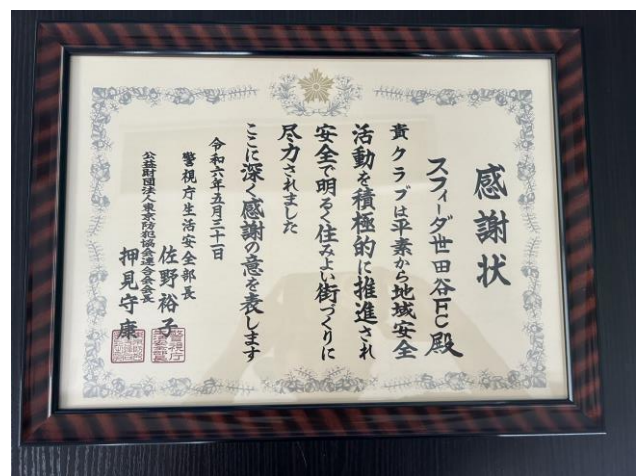 感謝状
スフィーダ世田谷FC殿
貴クラブは平素から地域安全
活動を積極的に推進され
安全で明るく住みよい街づくりに
尽力されました
ここに深く感謝の意を表します
令和六年五月三十一日
警視庁生活安全部長
佐野裕子
公益財団法人東京防犯協会連合会会長
押見守康